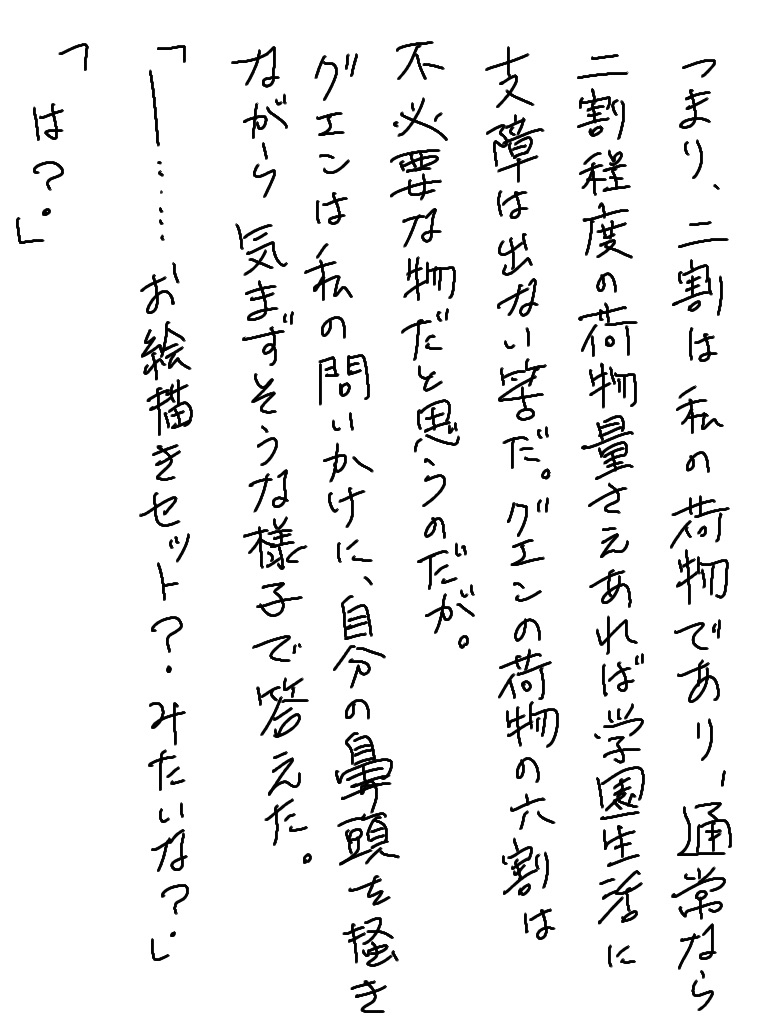 つまり、二割は私の荷物であり、通常なら
二割程度の荷物量さえあれば学園生活に
支障は出ない筈だ。グエンの荷物の六割は
不必要な物だと思うのだが。
グエンは私の問いかけに、自分の鼻頭を掻き
ながら気まずそうな様子で答えた。
「―……お絵描きセット？みたいな？」
「は？」